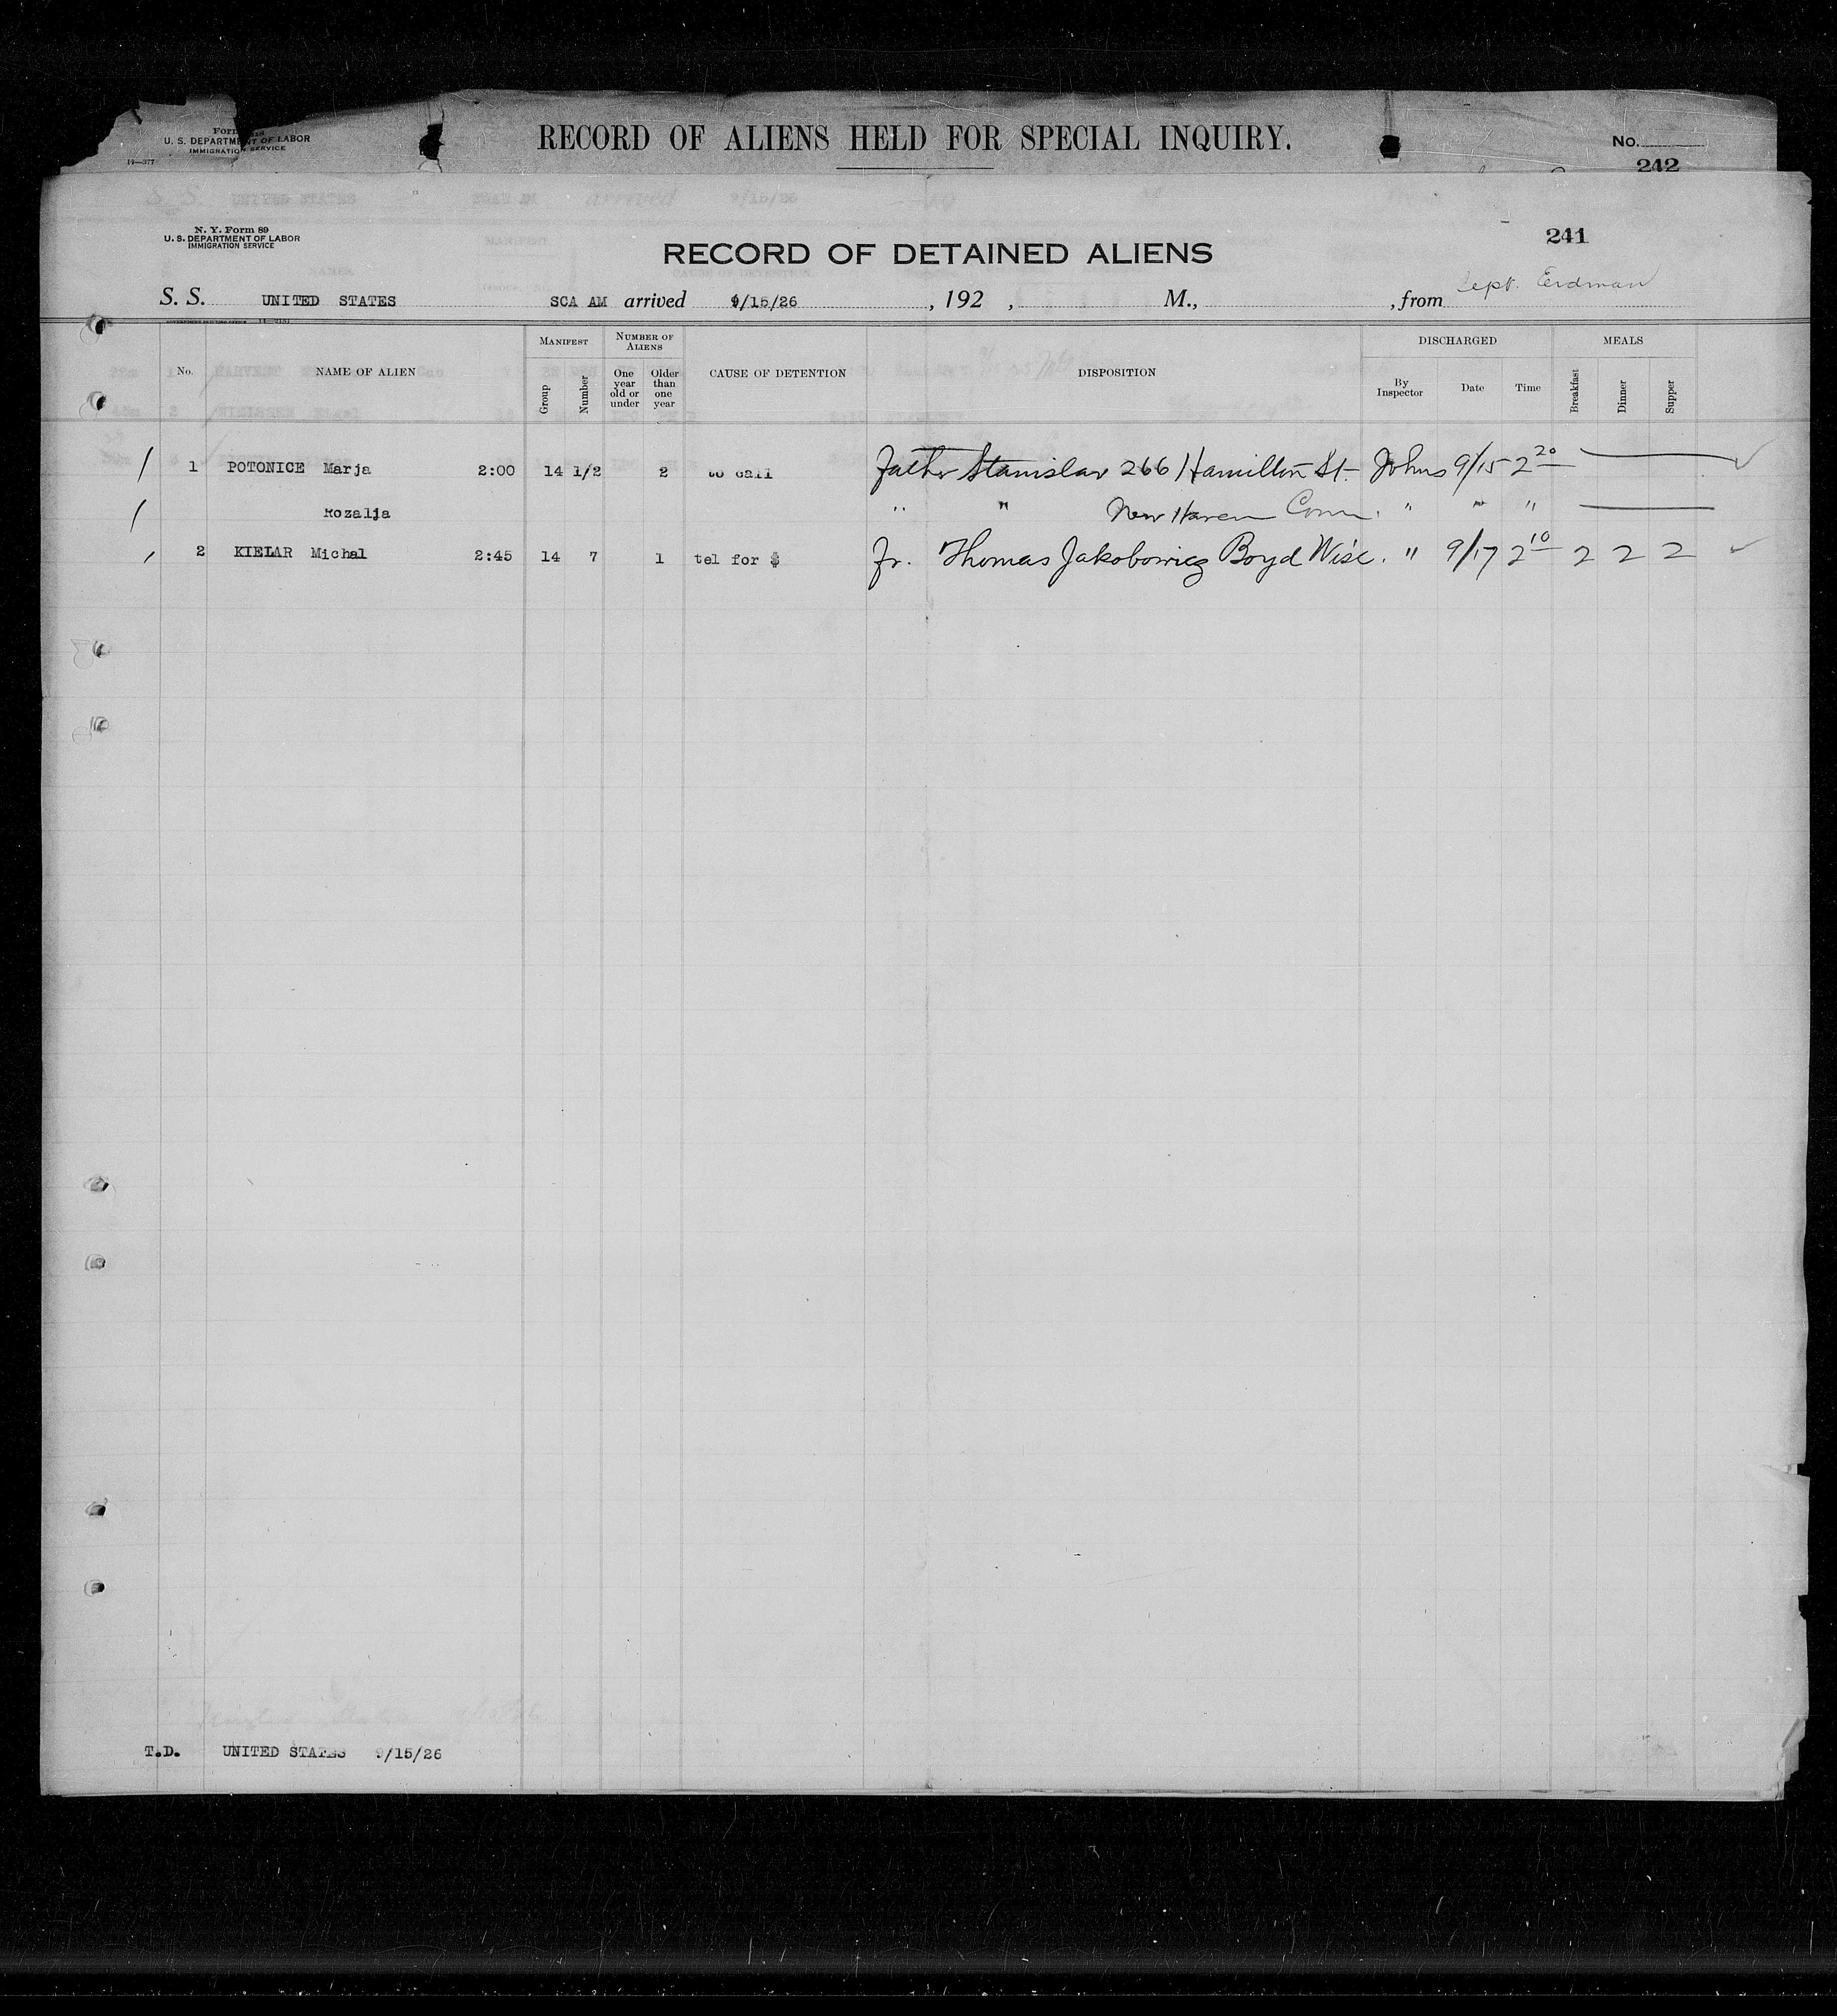 U. S. DEPARTMENT OF LABOR
IMMIGRATION SERVICE
14—377
RECORD OF ALIENS HELD FOR SPECIAL INQUIRY.
No.
242
N. Y. Form 89
U. S. DEPARTMENT OF LABOR
IMMIGRATION SERVICE
RECORD OF DETAINED ALIENS
241
S. S. UNITED STATES SCA AM arrived 9/15/26, 192 , M., , from Erdman
No. NAME OF ALIEN MANIFEST Group Number NUMBER OF ALIENS One year old or under Older than one year CAUSE OF DETENTION DISPOSITION DISCHARGED By Inspector Date Time MEALS Breakfast Dinner Supper
/ 1 POTONICE Marja 2:00 14 1/2 2 to call Father Stanislav 266 Hamilton St. Johns 9/15 2 20
/ Rozalja " " New Haven Conn. " " "
/ 2 KIELAR Michal 2:45 14 7 1 tel for $ Fr. Thomas Jakobowicz Boyd Wisc. " 9/17 2 10 2 2 2
T.D. UNITED STATES 9/15/26